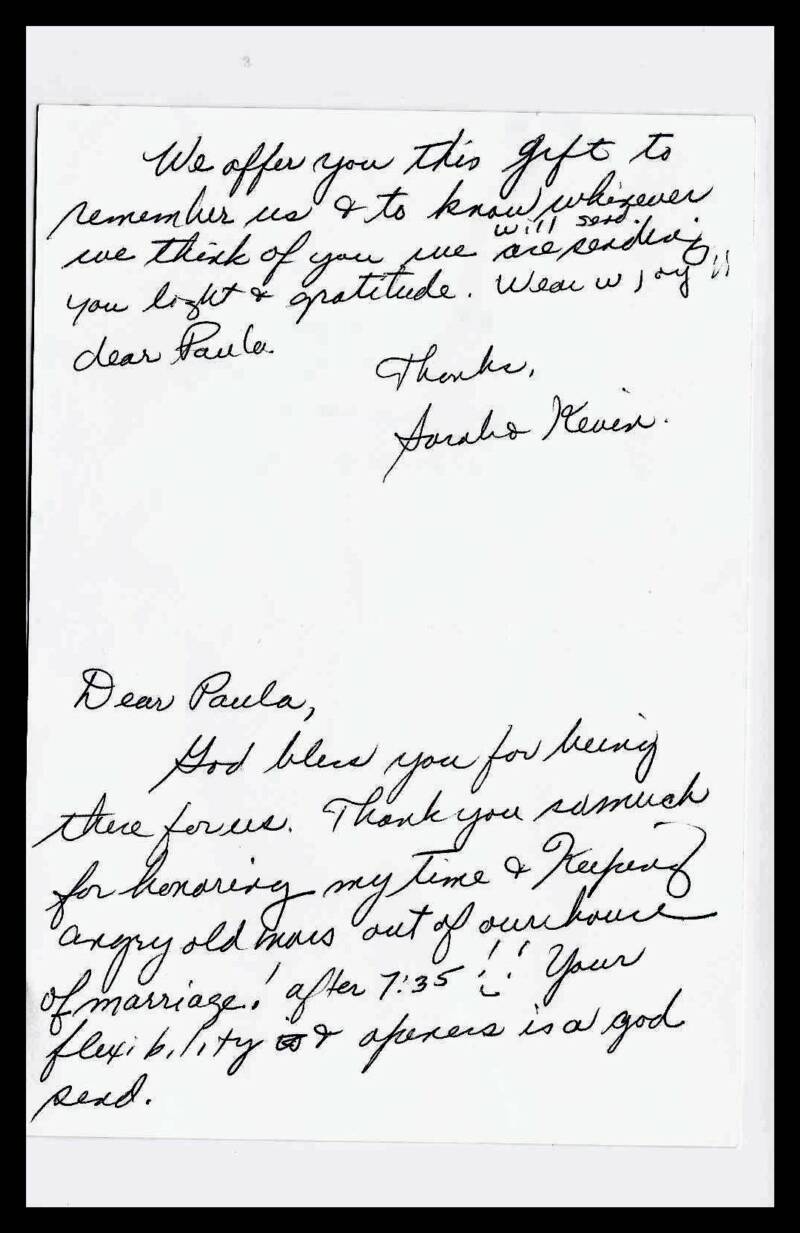 We offer you this gift to
remember us & to know whenever
will send
we think of you we are sending
you light & gratitude. Wear w joy !!
dear Paula.
Thanks,
Sarah & Kevin.
Dear Paula,
God bless you for being
there for us. Thank you so much
for honoring my time & Keeping
angry old out of our house
of marriage! after 7:35 !! Your
flexibility & openess is a god
send.